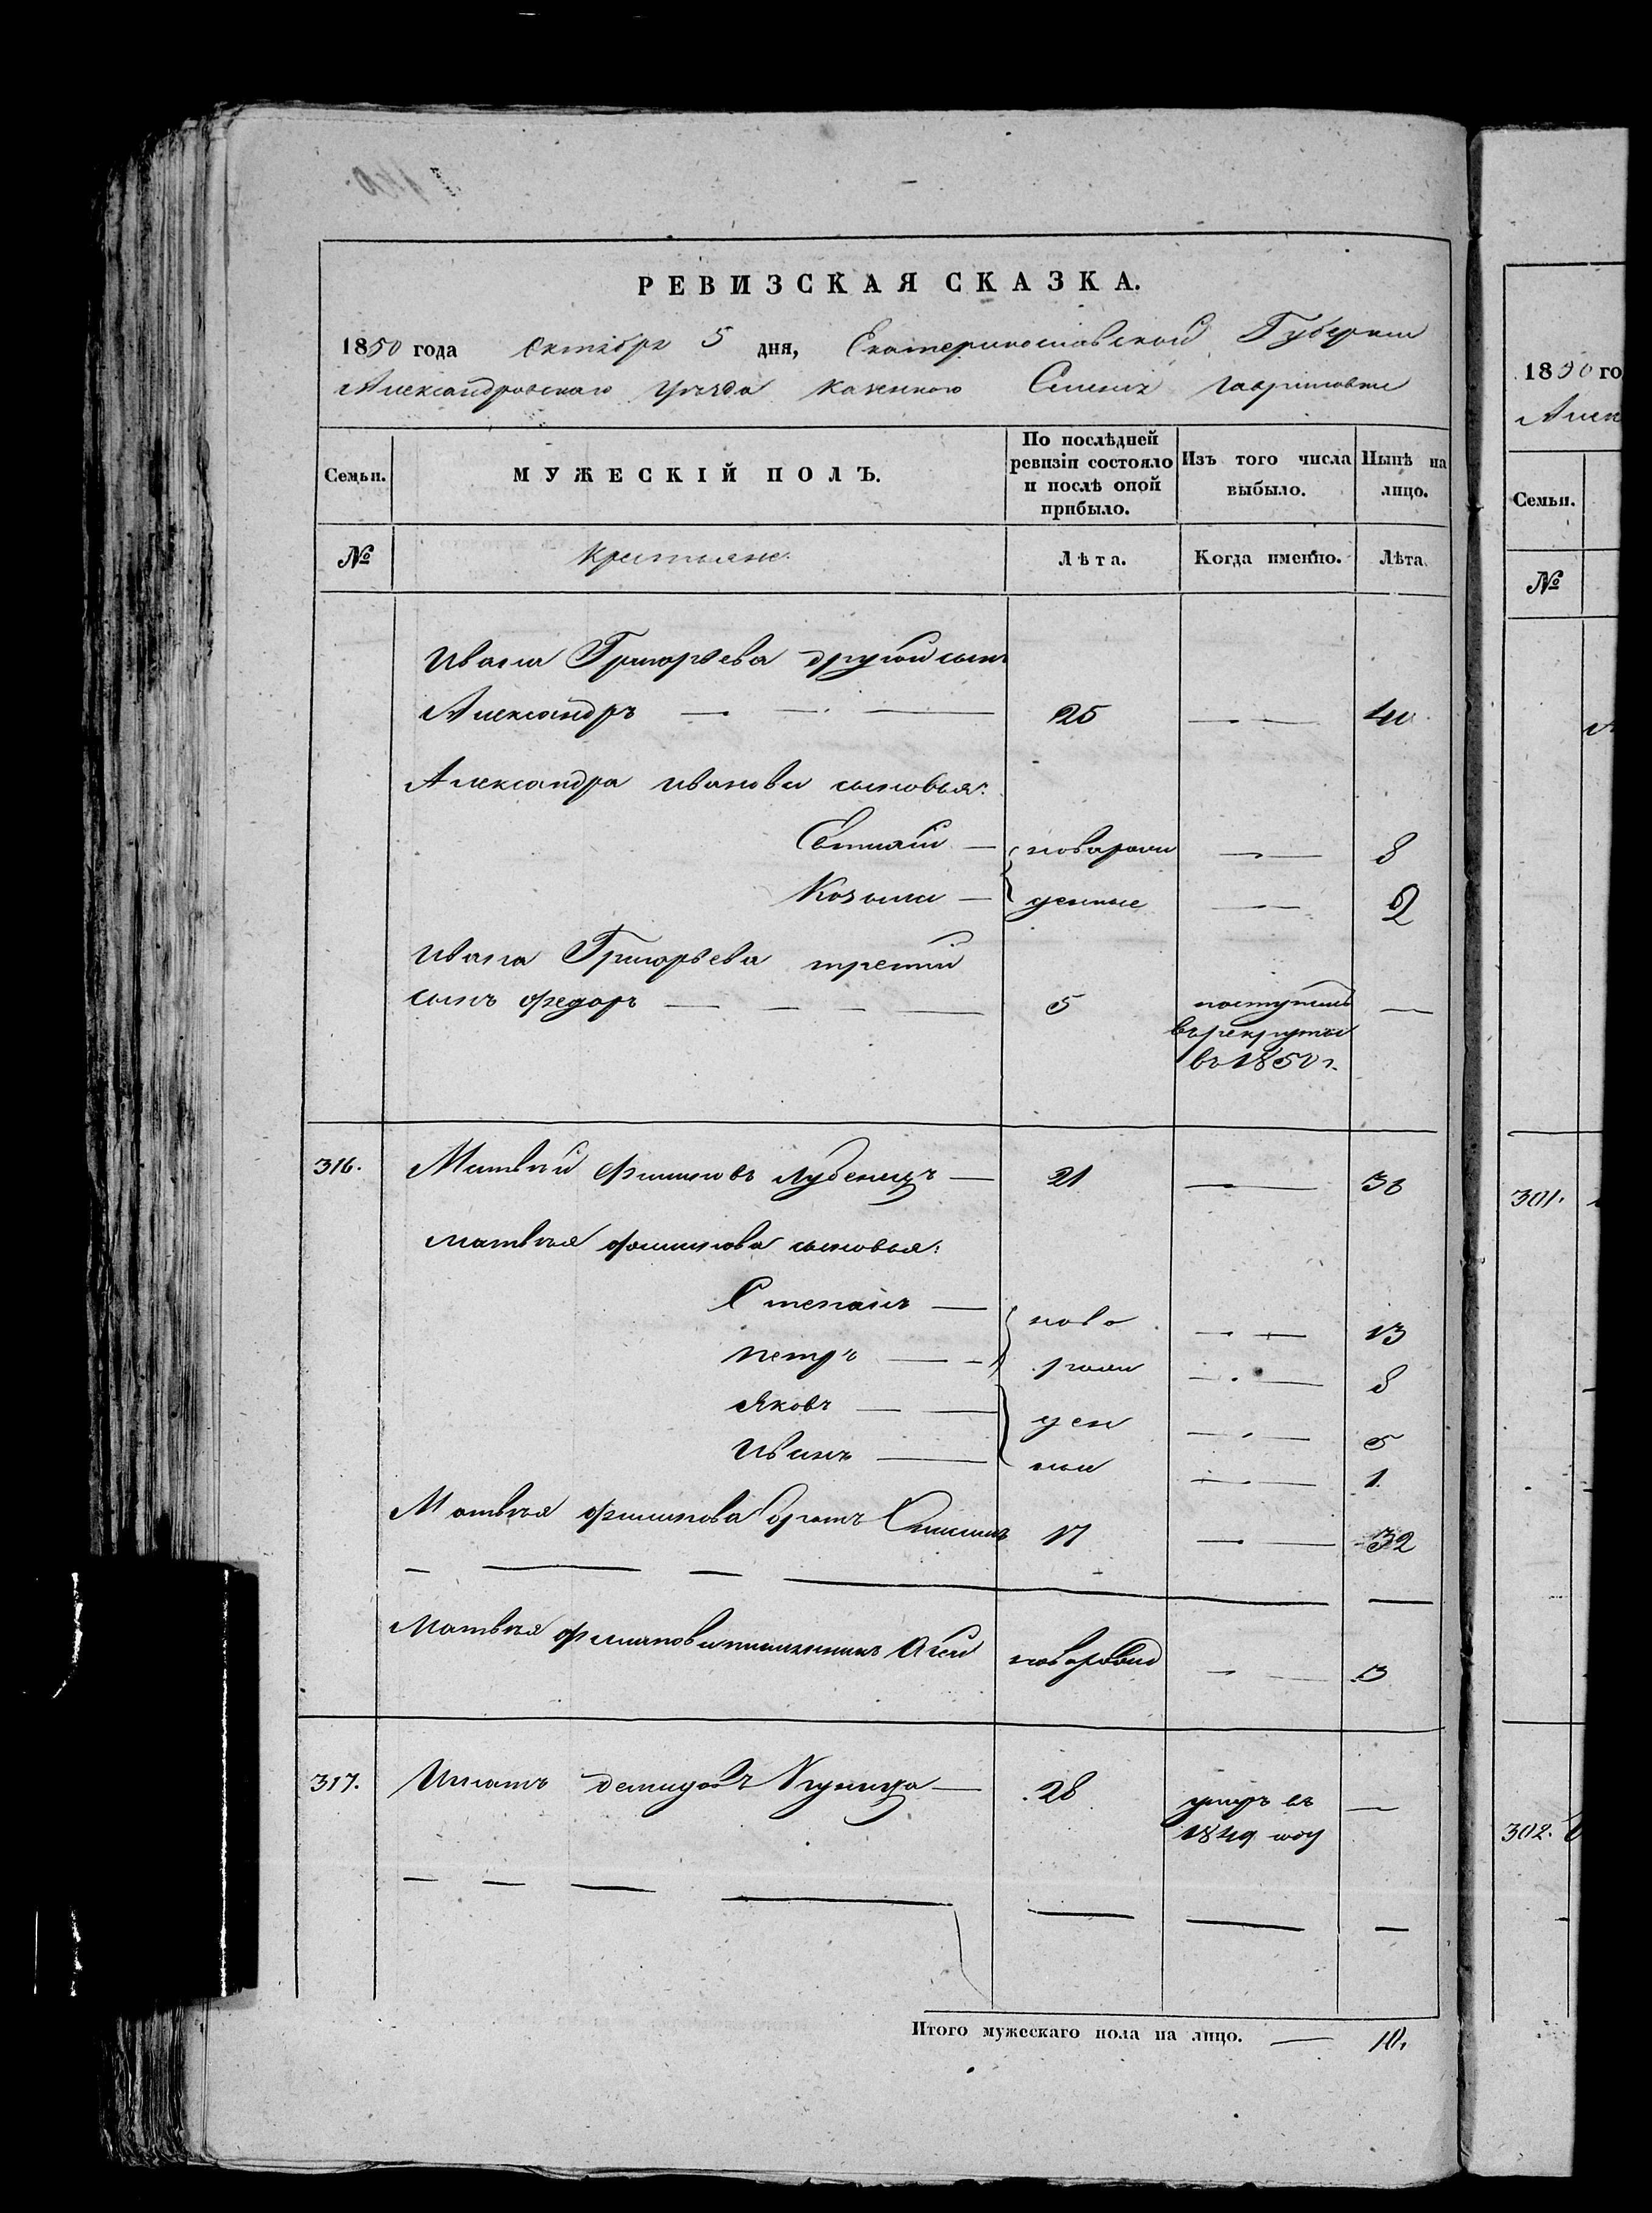 РЕВИЗСКАЯ СКАЗКА.
1850 года Октября 5 дня, Екатеринославской Губернии
Александровскаго уѣзда казеннаго Гавриловки
Семьи. МУЖЕСКІЙ ПОЛЪ. По послѣдней ревизіи состояло и послѣ оной прибыло. Изъ того числа выбыло. Нынѣ на лицо.
№ Крестьяне. Лѣта. Когда именно. Лѣта.
Ивана Григорьева другой сынъ
Александръ 25 40
Александра Иванова сыновья:
новорож 8
Козьма денные 2
Ивана Григорьева третій
сынъ Федоръ 5 поступилъ
въ рекруты
въ 1850 г.
316. Матвѣй Филиповъ Лубенецъ 21 36
Матвѣя Филипова сыновья:
Степанъ ново 13
Петръ рож 8
Яковъ ден 5
Иванъ ные 1
Матвѣя Филипова братъ 17 32
Матвѣя Филипова племянникъ новорожд 13
317. Игнатъ Демидовъ Куница 28 умеръ въ
1849 году
Итого мужескаго пола на лицо. 10.
1850 го
Алек
Семьи.
№
301.
302.